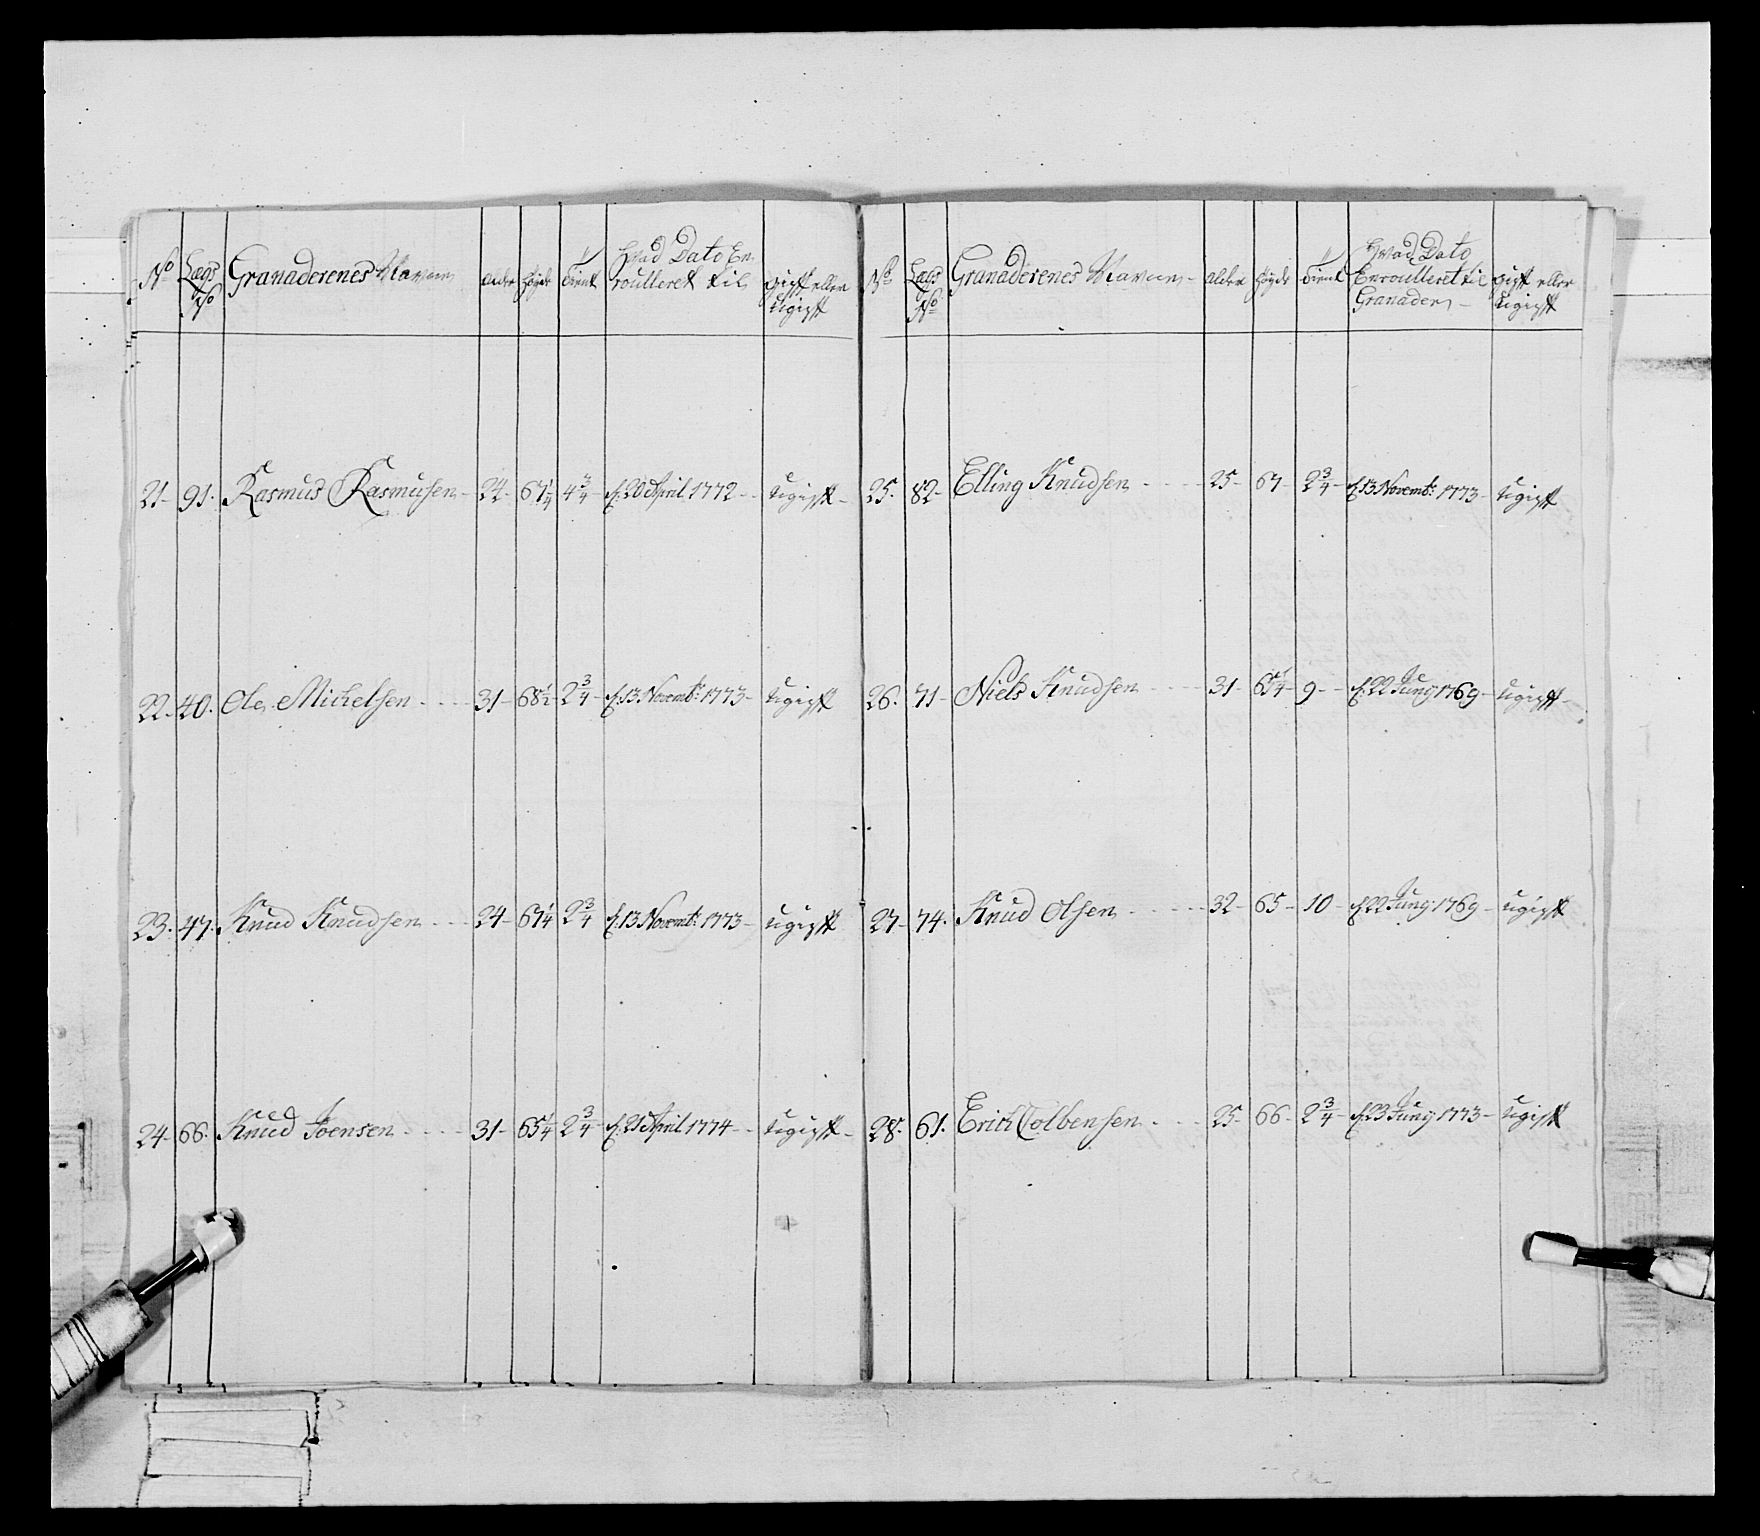 No Lægs No Granaderenes Navne alder høyde tient Hvad Dato En-
roulleret til gift eller
ugift
21- 91. Rasmus Rasmusen- 24- 67 1/4 4 3/4- d. 20 April 1772- ugift-
22- 40. Ole Michelsen 31- 68 1/2- 2 3/4- d. 13 Novembr: 1773- ugift
23. 47. Knud Knudsen 24- 67 1/4 2 3/4 d. 13 Novembr: 1773- ugift
24 66 Knud Joensen 31- 65 1/4 2 3/4- d. 21 April 1774- ugift-
No Lægs No Granaderenes Navne- alder høyde tient Hvad Dato
Enroulleret til
Granader- gift eller
ugift
25. 82- Elling Knudsen 25- 67- 2 3/4- d. 13 Novembr: 1773- ugift
26. 71- Niels Knudsen 31- 65 1/4- 9- d. 22 Juny 1769- ugift-
27- 74. Knud Olsen 32- 65- 10- d. 22 Juny 1769- ugift
28. 61. Erich Tolbensen 25- 66- 2 3/4- d. 23 Juny 1773- ugift